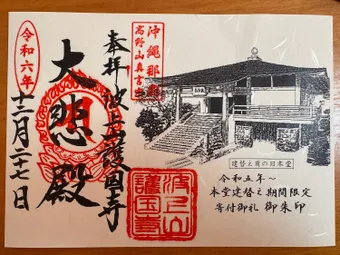 沖縄那覇
高野山真言宗
奉拝
波上山護国寺
大悲殿
令和六年
十二月二十七日
建替え前の旧本堂
令和五年〜
本堂建替え期間限定
寄付御礼 御朱印
波上山
護国寺